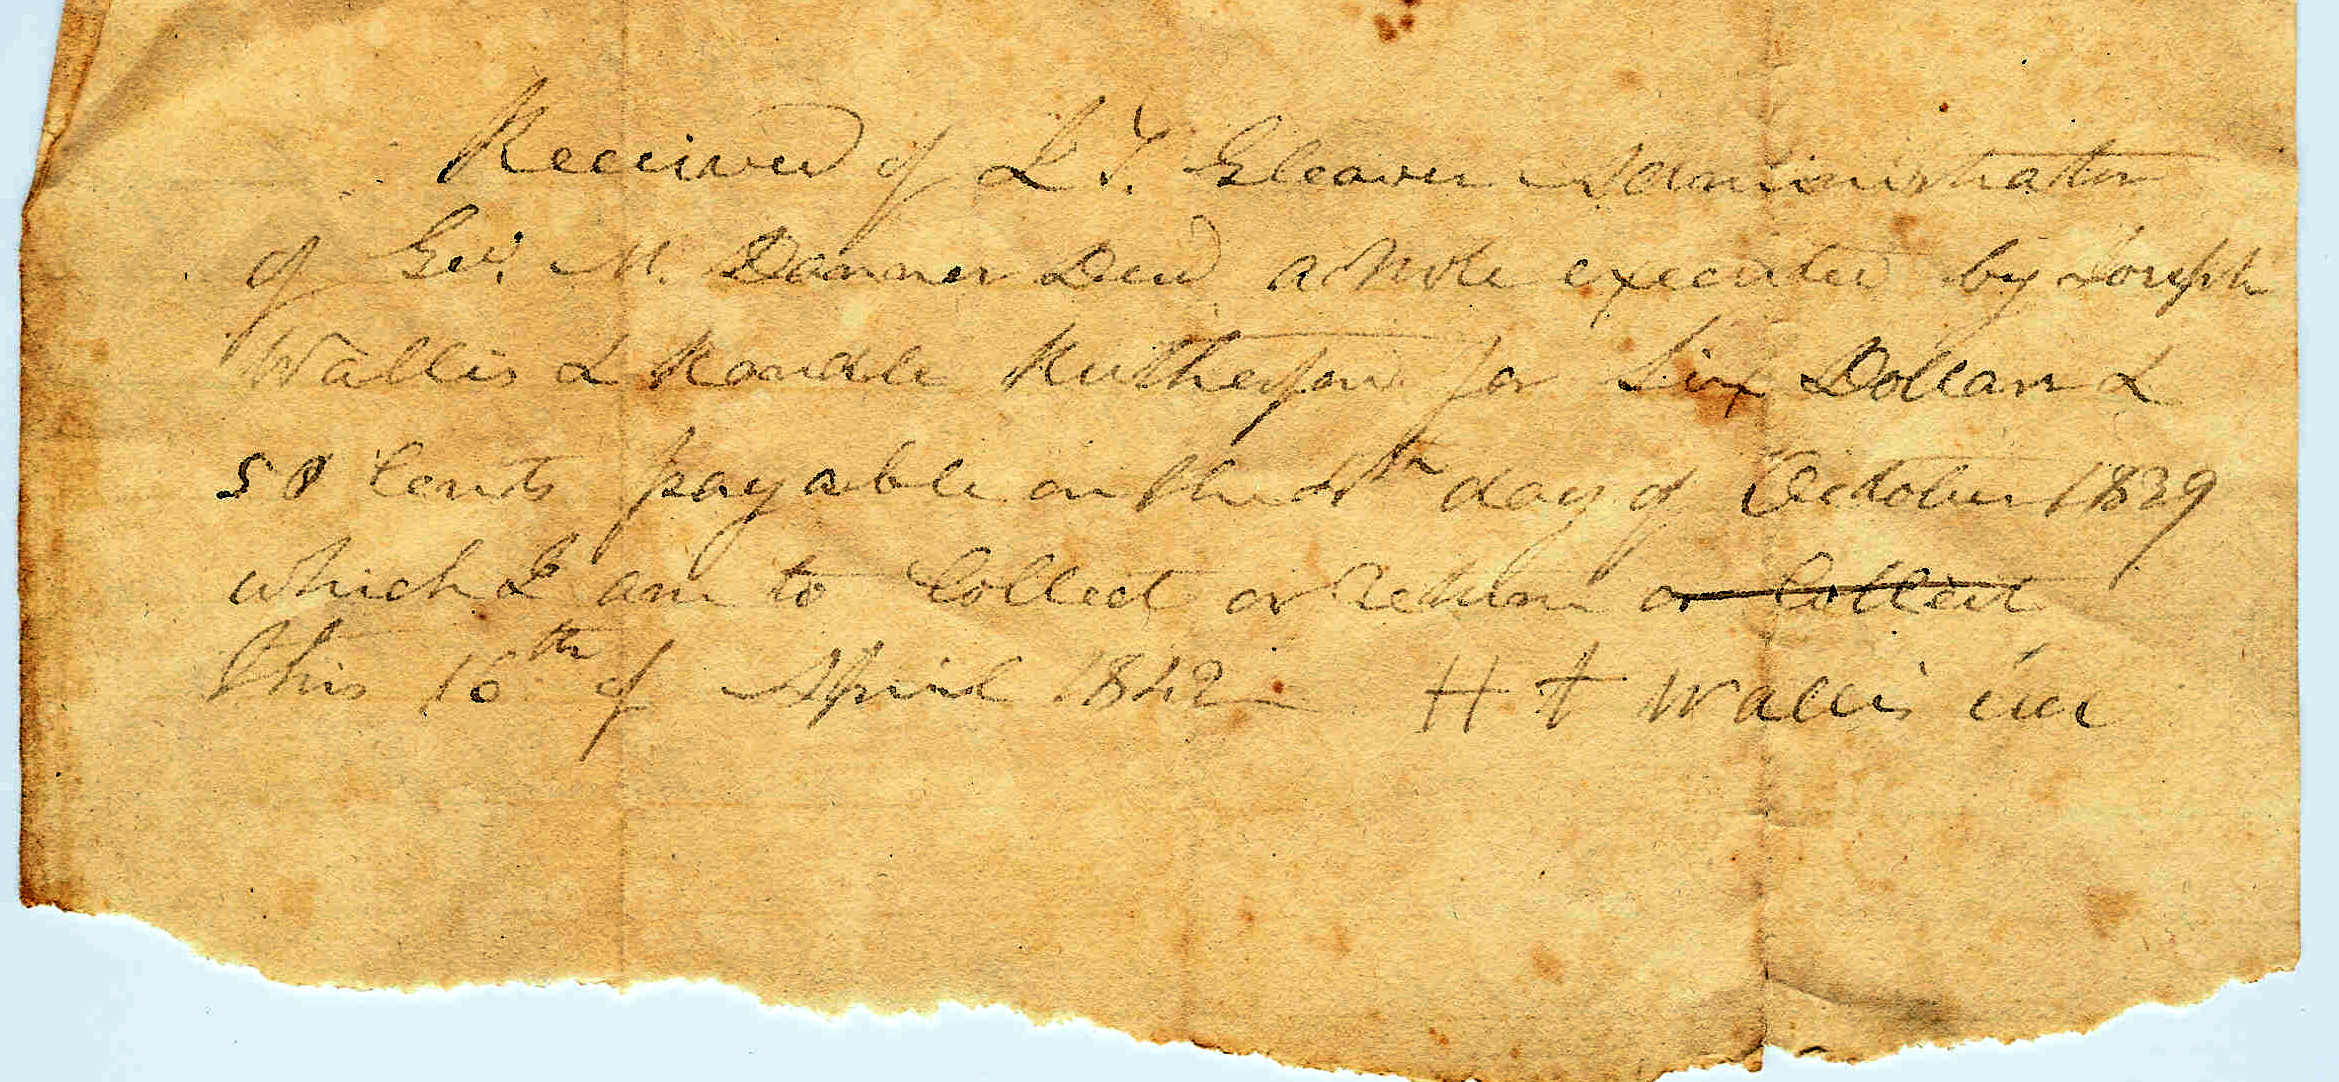 Received of L. T. Gleaves Administrator
of Geo. M. Danner Decd a Note executed by Joseph
Wallis & Rutherford for Six Dollars &
50 Cents payable on the day of October 1839
which I am to Collect or return or Collect
this 16th of April 1842 H A Wallis